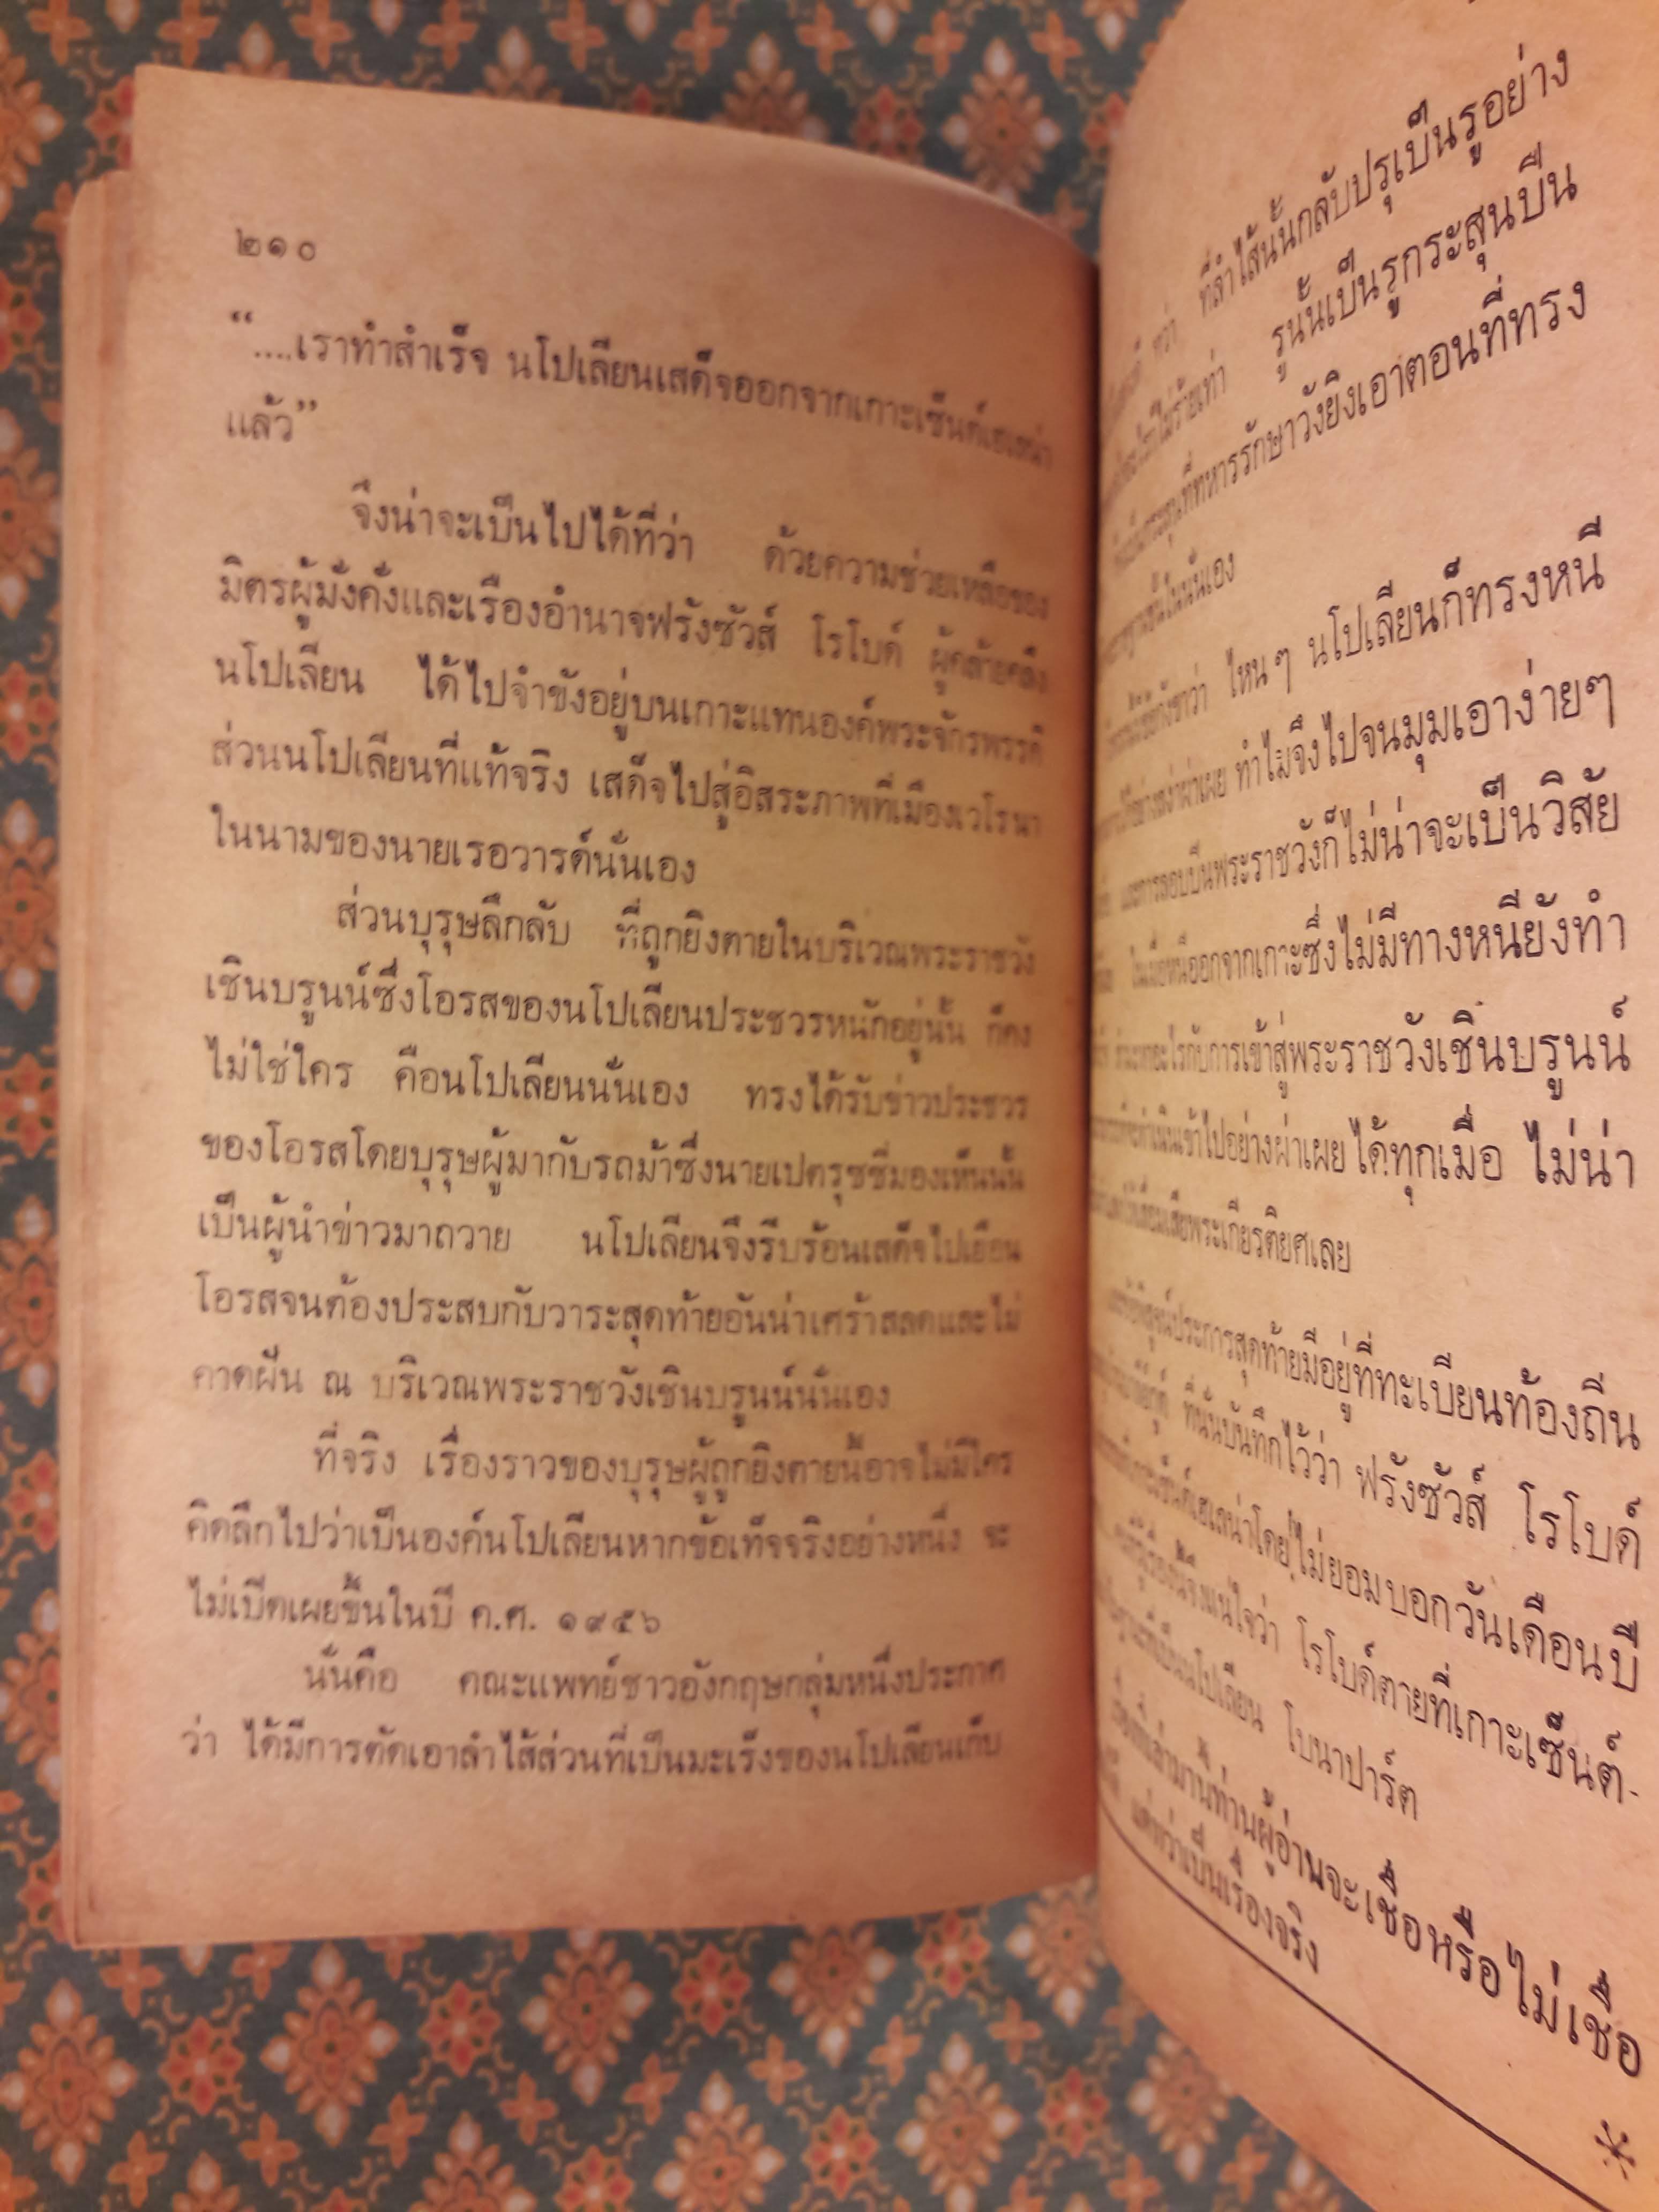 ๒๑๐
“....เราทำสำเร็จ นโปเลียนเสด็จออกจากเกาะเซ็นต์เฮเลน่า
แล้ว”
จึงน่าจะเป็นไปได้ที่ว่า ด้วยความช่วยเหลือของ
มิตรผู้มั่งคั่งและเรืองอำนาจฟรังซัวส์ โรโบด์ ผู้คล้ายคลึง
นโปเลียน ได้ไปจำขังอยู่บนเกาะแทนองค์พระจักรพรรดิ
ส่วนนโปเลียนที่แท้จริง เสด็จไปสู่อิสระภาพที่เมืองเวโรนา
ในนามของนายเรอวารด์นั่นเอง
ส่วนบุรุษลึกลับ ที่ถูกยิงตายในบริเวณพระราชวัง
เชินบรูนน์ซึ่งโอรสของนโปเลียนประชวรหนักอยู่นั้น ก็คง
ไม่ใช่ใคร คือนโปเลียนนั่นเอง ทรงได้รับข่าวประชวร
ของโอรสโดยบุรุษผู้มากับรถม้าซึ่งนายเปตรุชชีมองเห็นนั้น
เป็นผู้นำข่าวมาถวาย นโปเลียนจึงรีบร้อนเสด็จไปเยือน
โอรสจนต้องประสบกับวาระสุดท้ายอันน่าเศร้าสลดและไม่
คาดฝัน ณ บริเวณพระราชวังเชินบรูนน์นั่นเอง
ที่จริง เรื่องราวของบุรุษผู้ถูกยิงตายนี้อาจไม่มีใคร
คิดลึกไปว่าเป็นองค์นโปเลียนหากข้อเท็จจริงอย่างหนึ่ง จะ
ไม่เปิดเผยขึ้นในปี ค.ศ. ๑๙๕๖
นั่นคือ คณะแพทย์ชาวอังกฤษกลุ่มหนึ่งประกาศ
ว่า ได้มีการตัดเอาลำไส้ส่วนที่เป็นมะเร็งของนโปเลียนเก็บ
ที่ลำไส้นั้นกลับปรุเป็นรูอย่าง
รูนั้นเป็นรูกระสุนปืน
ที่ทหารรักษาวังยิงเอาตอนที่ทรง
ในนั่นเอง
ไหนๆ นโปเลียนก็ทรงหนี
ทำไมจึงไปจนมุมเอาง่ายๆ
และการลอบปีนพระราชวังก็ไม่น่าจะเป็นวิสัย
ในเมื่อหนีออกจากเกาะซึ่งไม่มีทางหนียังทำ
อะไรกับการเข้าสู่พระราชวังเชินบรูนน์
เข้าไปอย่างผ่าเผยได้ทุกเมื่อ ไม่น่า
เสียพระเกียรติยศเลย
ประการสุดท้ายมีอยู่ที่ทะเบียนท้องถิ่น
ที่นั่นบันทึกไว้ว่า ฟรังซัวส์ โรโบด์
เกาะเซ็นต์เฮเลน่าโดยไม่ยอมบอกวันเดือนปี
แน่ใจว่า โรโบด์ตายที่เกาะเซ็นต์-
นโปเลียน โบนาปาร์ต
ท่านผู้อ่านจะเชื่อหรือไม่เชื่อ
แต่ทว่าเป็นเรื่องจริง